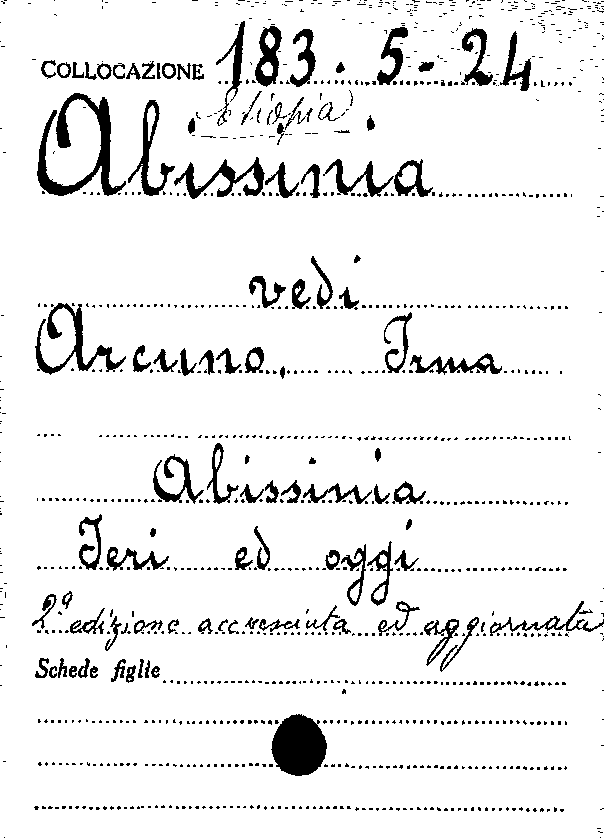 COLLOCAZIONE 183.5-24
Etiopia
Abissinia
vedi
Arcuno, Irma
Abissinia
Ieri ed oggi
2ª edizione accresciuta ed aggiornata
Schede figlie